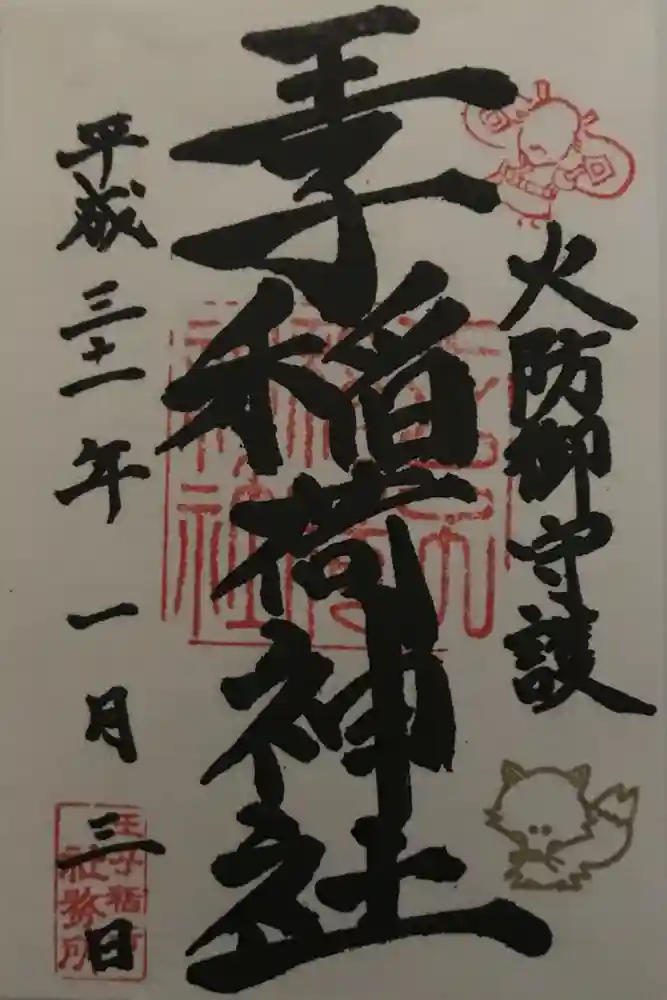 火防御守護
王子稲荷神社
平成三十一年一月三日
王子稲荷
社務所